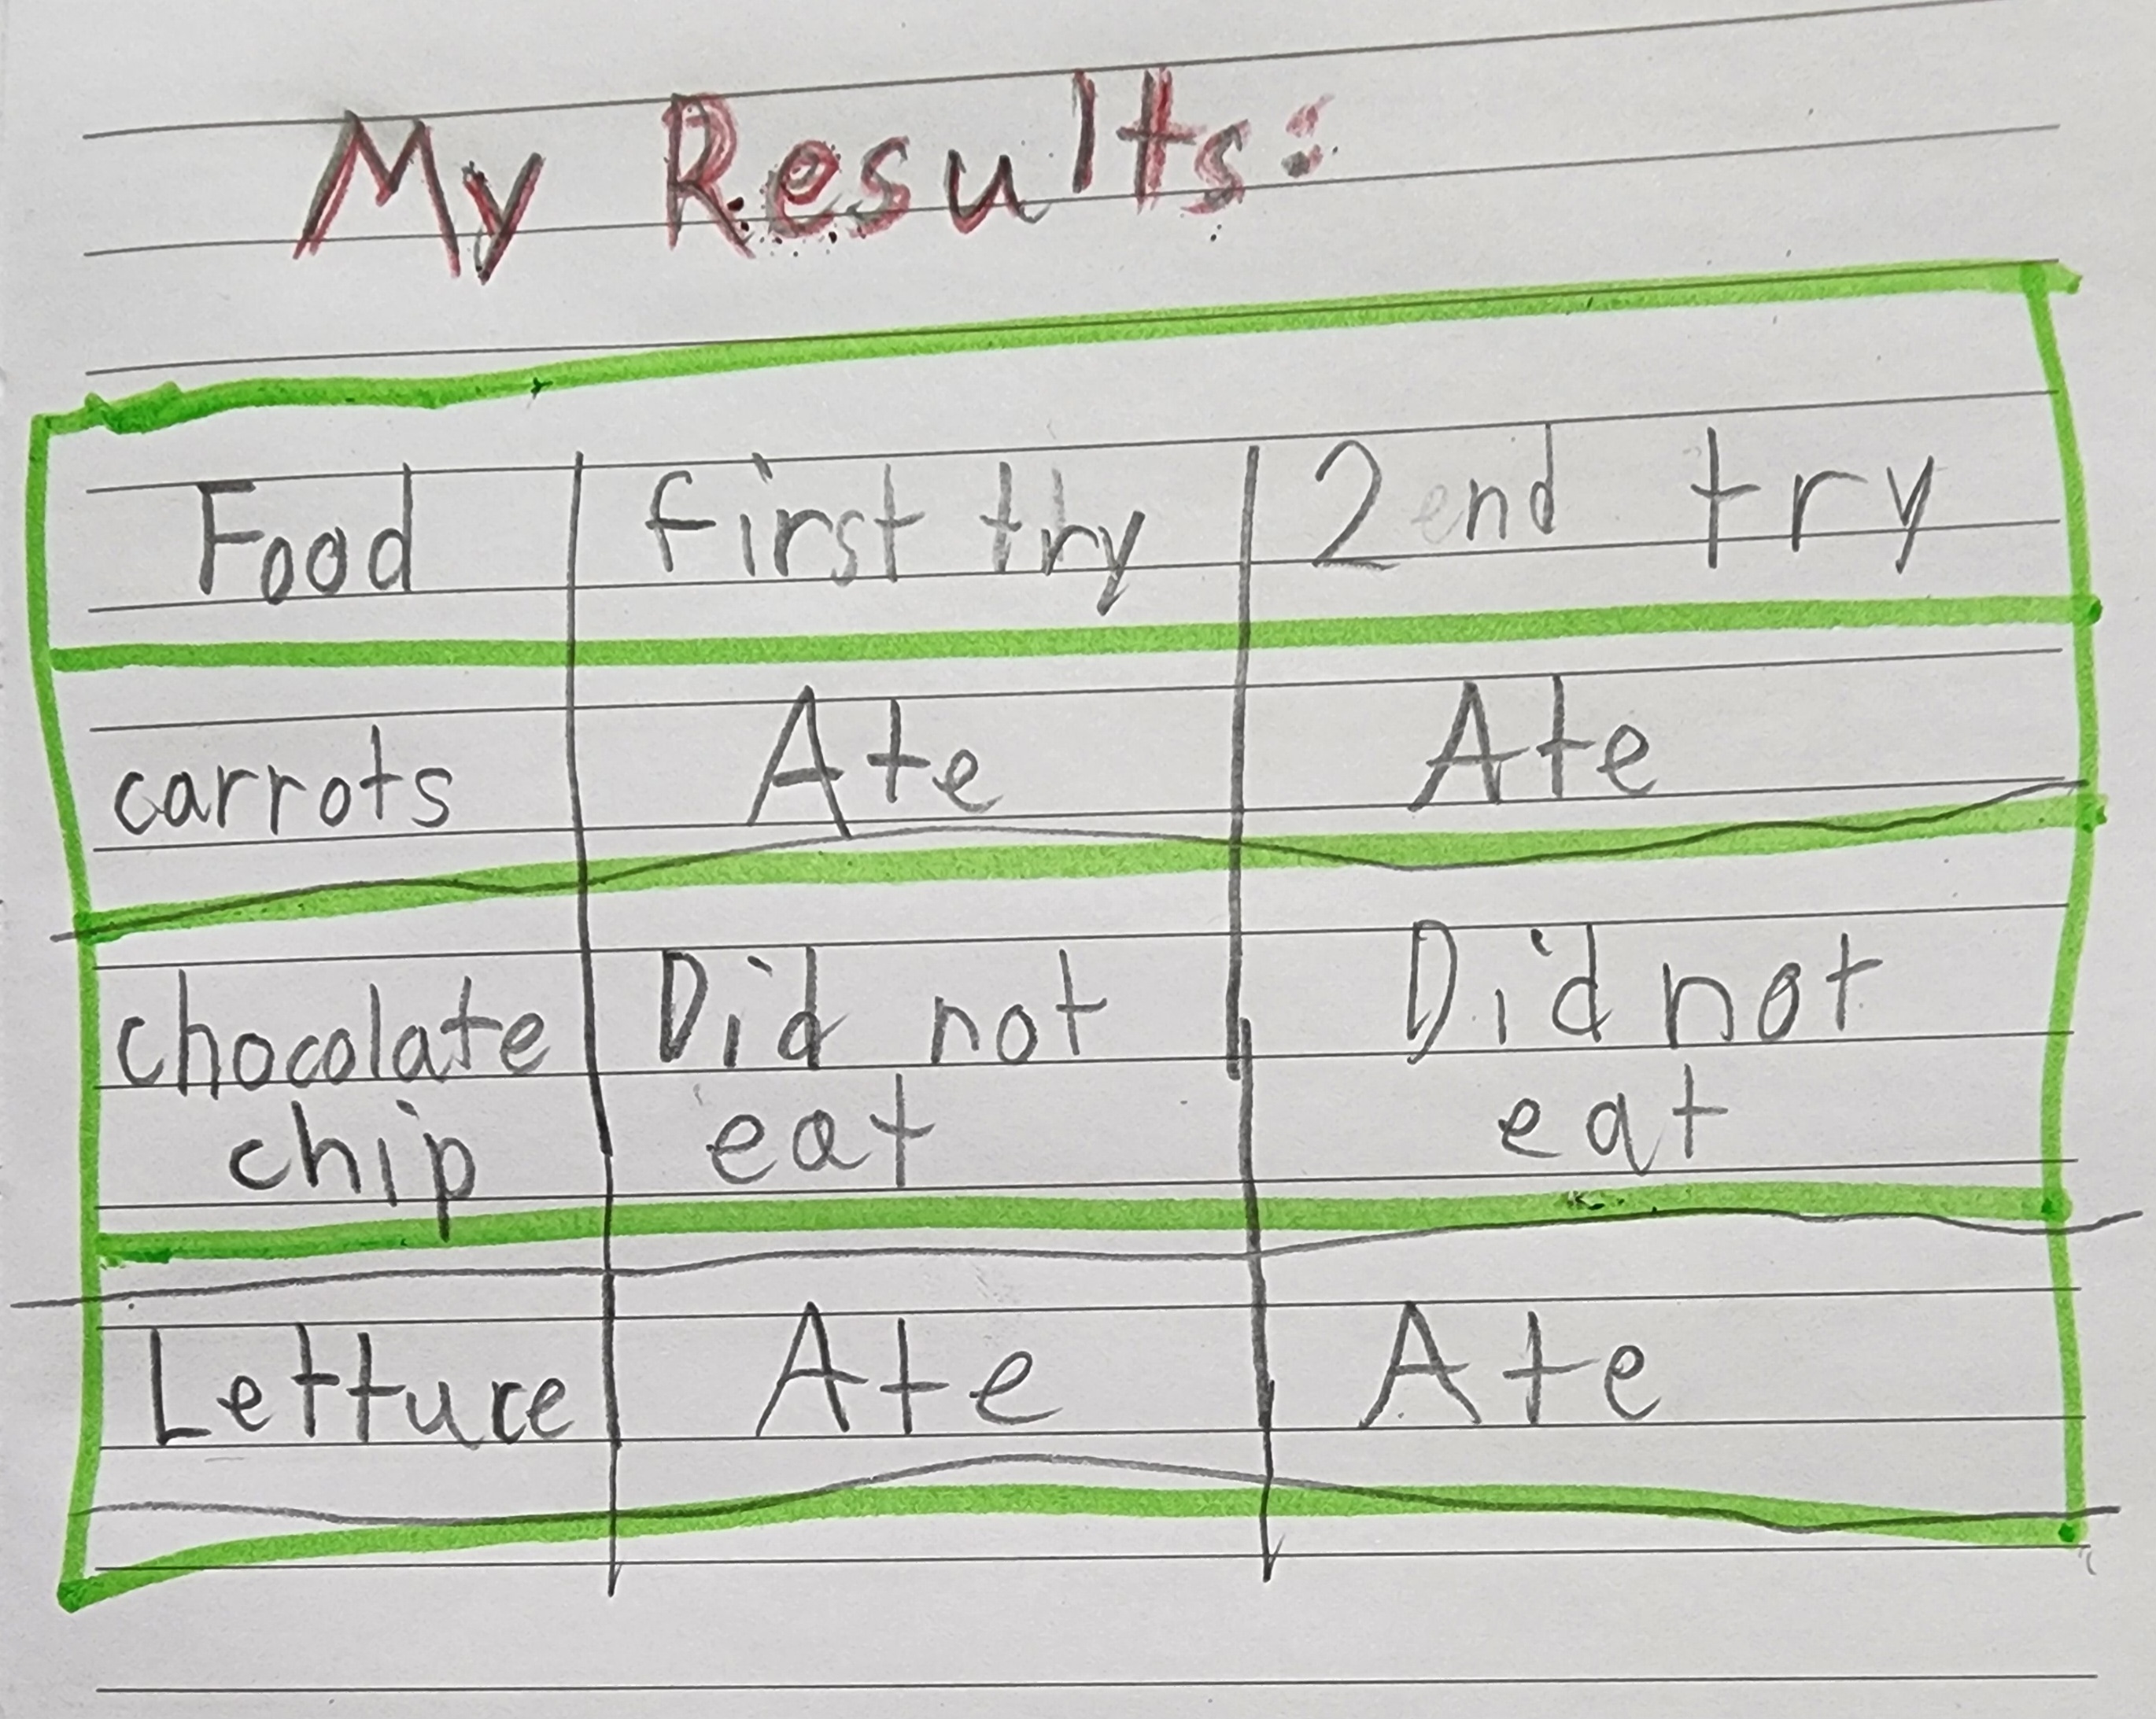 My Results:
Food first try 2end try
carrots Ate Ate
chocolate Did not Did not
chip eat eat
Lettuce Ate Ate